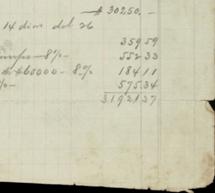 $ 30250.-
14 dias del 26
359 59
8%- 552 33
$60000- 8% 184 11
%- 575.34
31921 37